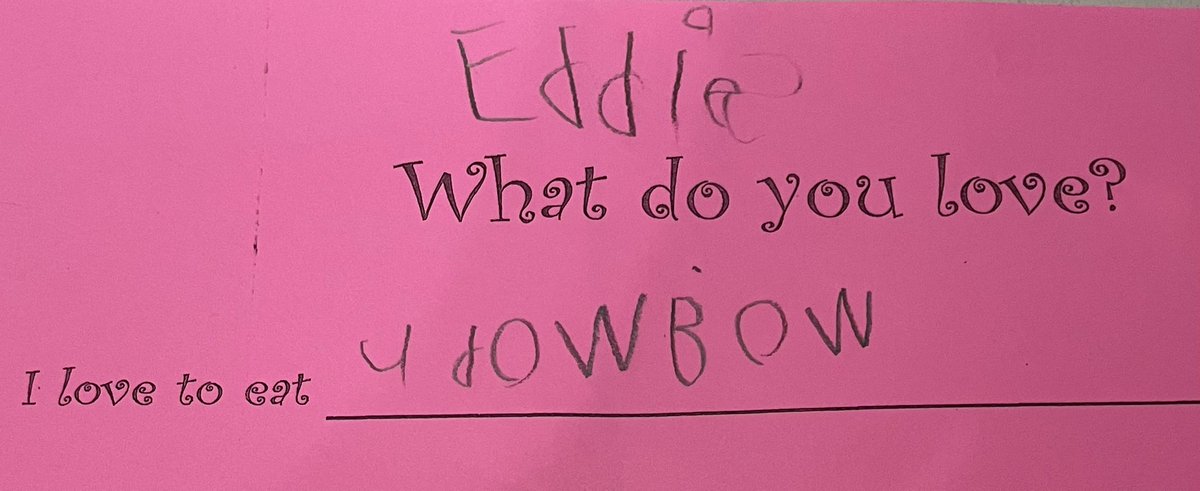 Eddie
What do you love?
I love to eat y dOWBOW